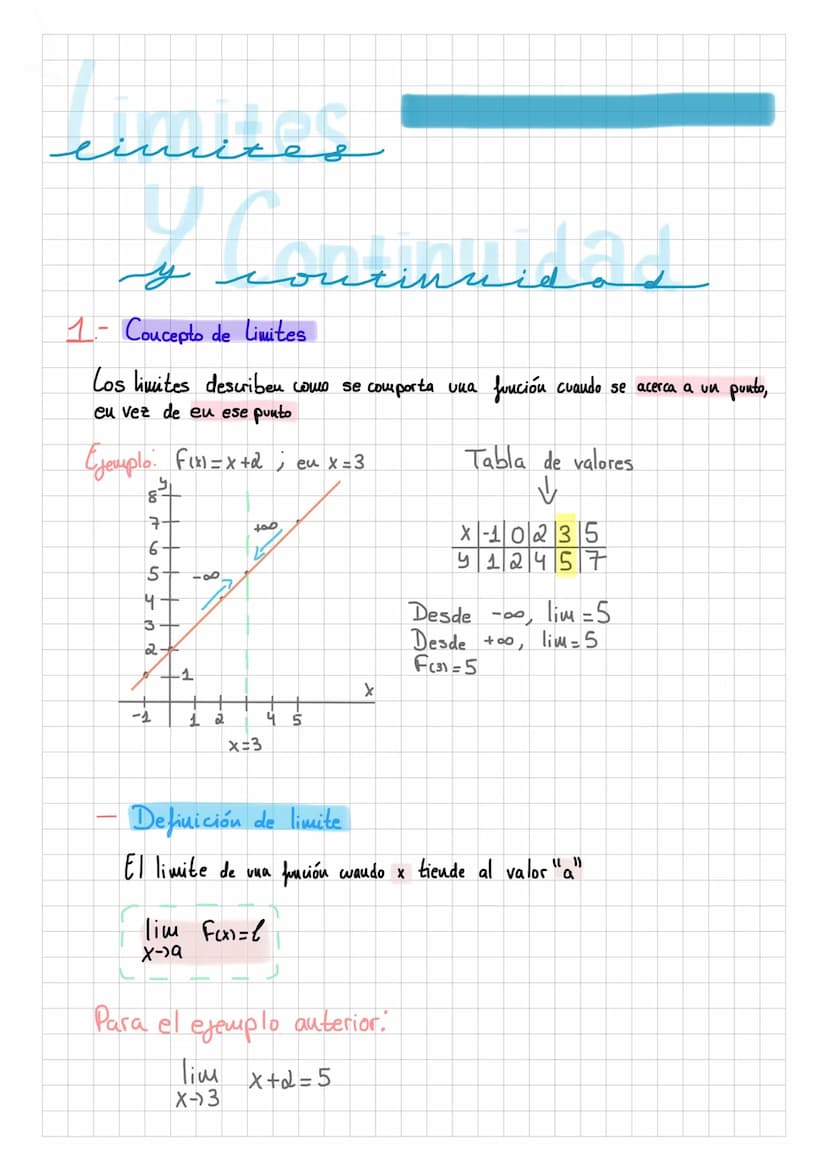 Limites
limites
Y Continuidad
y continuidad
1.- Concepto de limites
Los limites describen como se comporta una función cuando se acerca a un punto,
en vez de en ese punto
Ejemplo: F(x)=x+2 ; en x=3
Tabla de valores
x -1 0 2 3 5
y 1 2 4 5 7
Desde -∞, lim =5
Desde +∞, lim=5
F(3)=5
y
8
7
6
5
4
3
2
1
+∞
-∞
x
-1 1 2 4 5
x=3
- Definición de limite
El limite de una función cuando x tiende al valor "a"
lim F(x)=l
x→a
Para el ejemplo anterior:
lim x+2=5
x→3